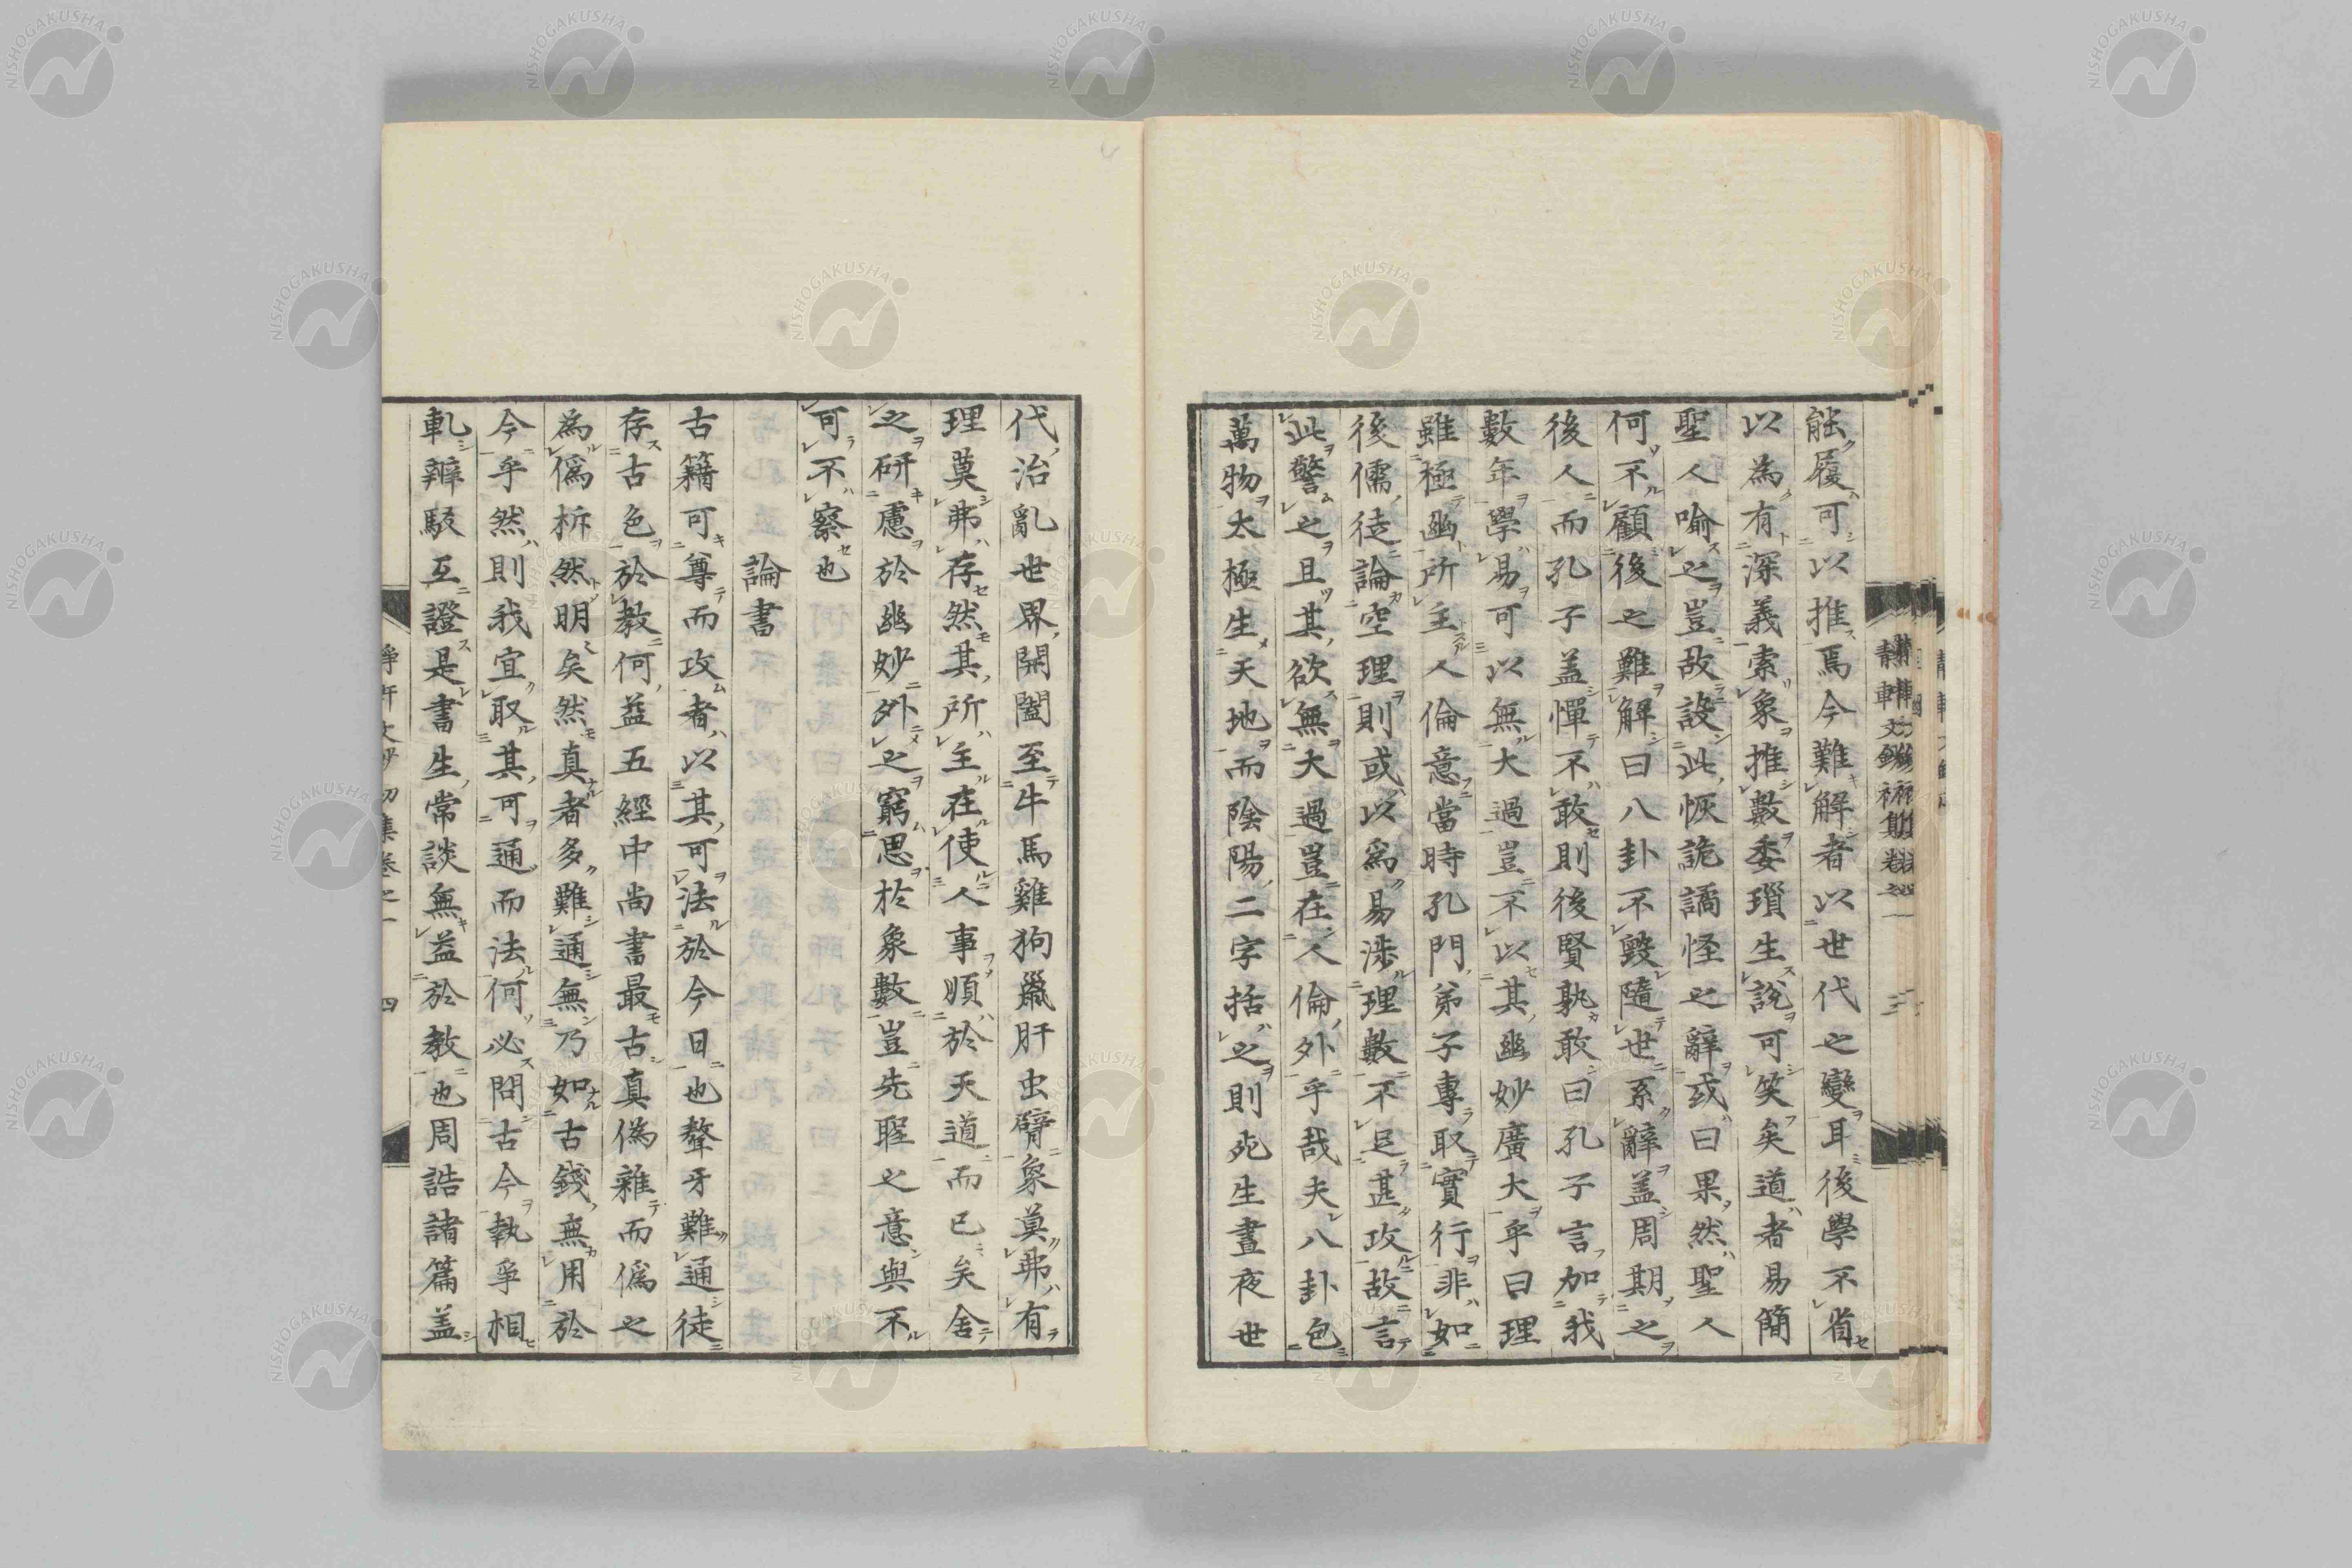 能履可以推焉今難解者以世代之變耳後學不省
以為有深義索象推數委瑣生說可笑矣道者易簡
聖人喻之豈故設此恢詭譎怪之辭或曰果然聖人
何不顧後之難解曰八卦不毀隨世系辭盖周期之
後人而孔子盖憚不敢則後賢孰敢曰孔子言加我
數年學易可以無大過豈不以其幽妙廣大乎曰理
雖極幽所主人倫意當時孔門弟子專取實行非如
後儒徒論空理則或以爲易涉理數不足甚攻故言
此警之且其欲無大過豈在人倫外乎哉夫八卦包
萬物太極生天地而陰陽二字括之則死生晝夜世
代治亂世界開闔至牛馬雞狗鼠肝虫臂象莫弗有
理莫弗存然其所主在使人事順於天道而已矣舍
之研慮於幽妙外之窮思於象數豈先聖之意與不
可不察也
論書
古籍可尊而攻者以其可法於今日也聱牙難通徒
存古色於教何益五經中尚書最古真僞雜而僞之
為僞柝然明矣然真者多難通無乃如古錢無用於
今乎然則我宜取其可通而法何必問古今執爭相
軋辯駁互證是書生常談無益於教也周誥諸篇盖
靜軒文鈔初集卷之一
四
靜軒文鈔初集卷之一
三
NISHOGAKUSHA